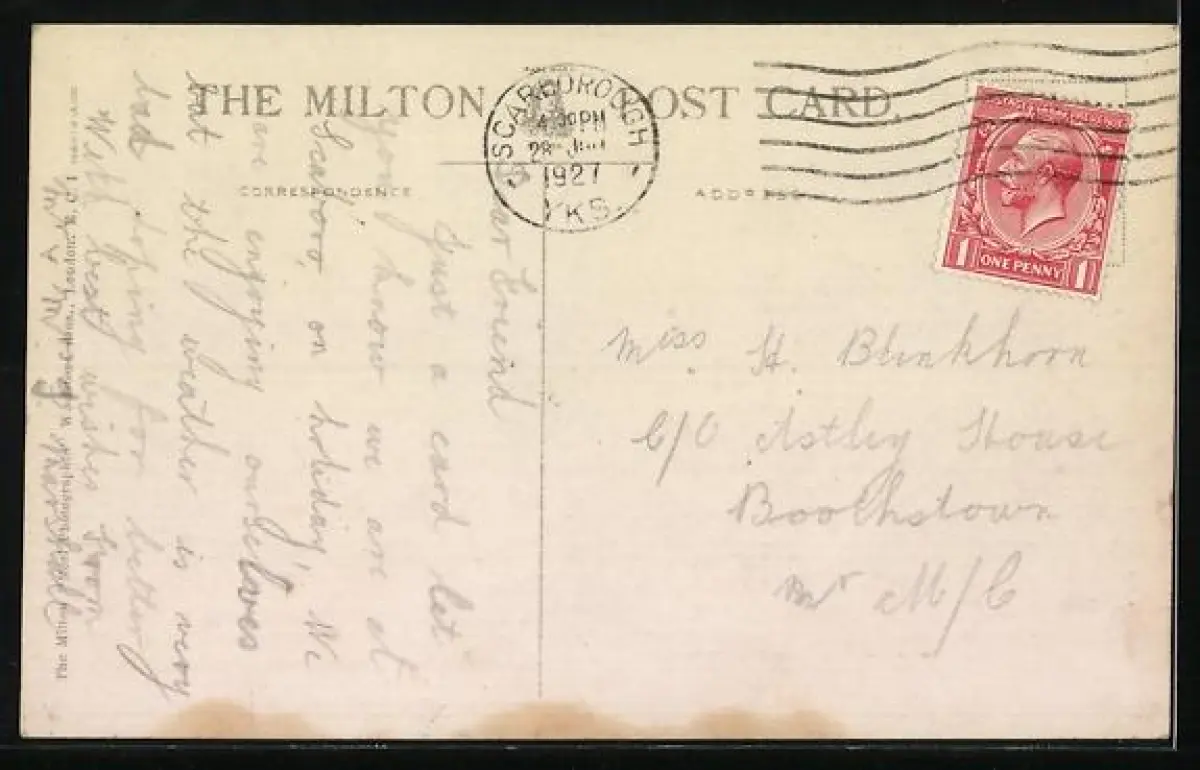 THE MILTON POST CARD.
SCARBOROUGH
PM
28 JU
1927
YKS.
CORRESPONDENCE
ADDRESS
ONE PENNY
1 1
Dear Friend
Just a card let
you know we are at
Scarboro, on holiday, We
are enjoying ourselves
but the weather is very
bad hoping for better
With best wishes from
Marshall
Miss H. Blinkhorn
C/O Astley House
Boothstown
Nr M/C
London, E.C. 1